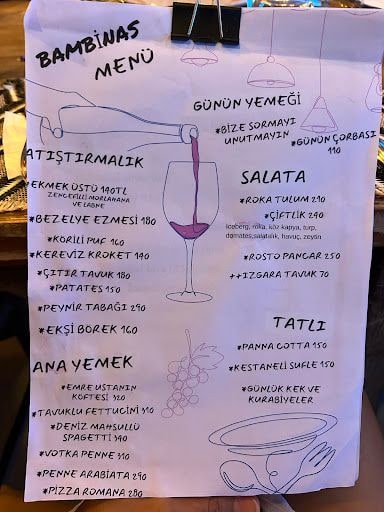 BAMBİNAS
MENÜ
GÜNÜN YEMEĞİ
*BİZE SORMAYI
UNUTMAYIN
*GÜNÜN ÇORBASI
110
ATIŞTIRMALIK
*EKMEK ÜSTÜ 140TL
ZENCEFİLLİ MORLAHANA
VE LABNE
*BEZELYE EZMESİ 180
*KORİLİ PUF 160
*KEREVİZ KROKET 140
*ÇITIR TAVUK 180
*PATATES 150
*PEYNİR TABAĞI 290
*EKŞİ BOREK 160
SALATA
*ROKA TULUM 290
*ÇİFTLİK 240
Iceberg, roka, köz kapya, turp,
domates,salatalık, havuç, zeytin
*ROSTO PANCAR 250
++IZGARA TAVUK 70
ANA YEMEK
*EMRE USTANIN
KÖFTESİ 320
*TAVUKLU FETTUCİNİ 310
*DENİZ MAHSULLÜ
SPAGETTİ 340
*VOTKA PENNE 310
*PENNE ARABIATA 290
*PİZZA ROMANA 280
TATLI
*PANNA COTTA 150
*KESTANELİ SUFLE 150
*GÜNLÜK KEK VE
KURABİYELER